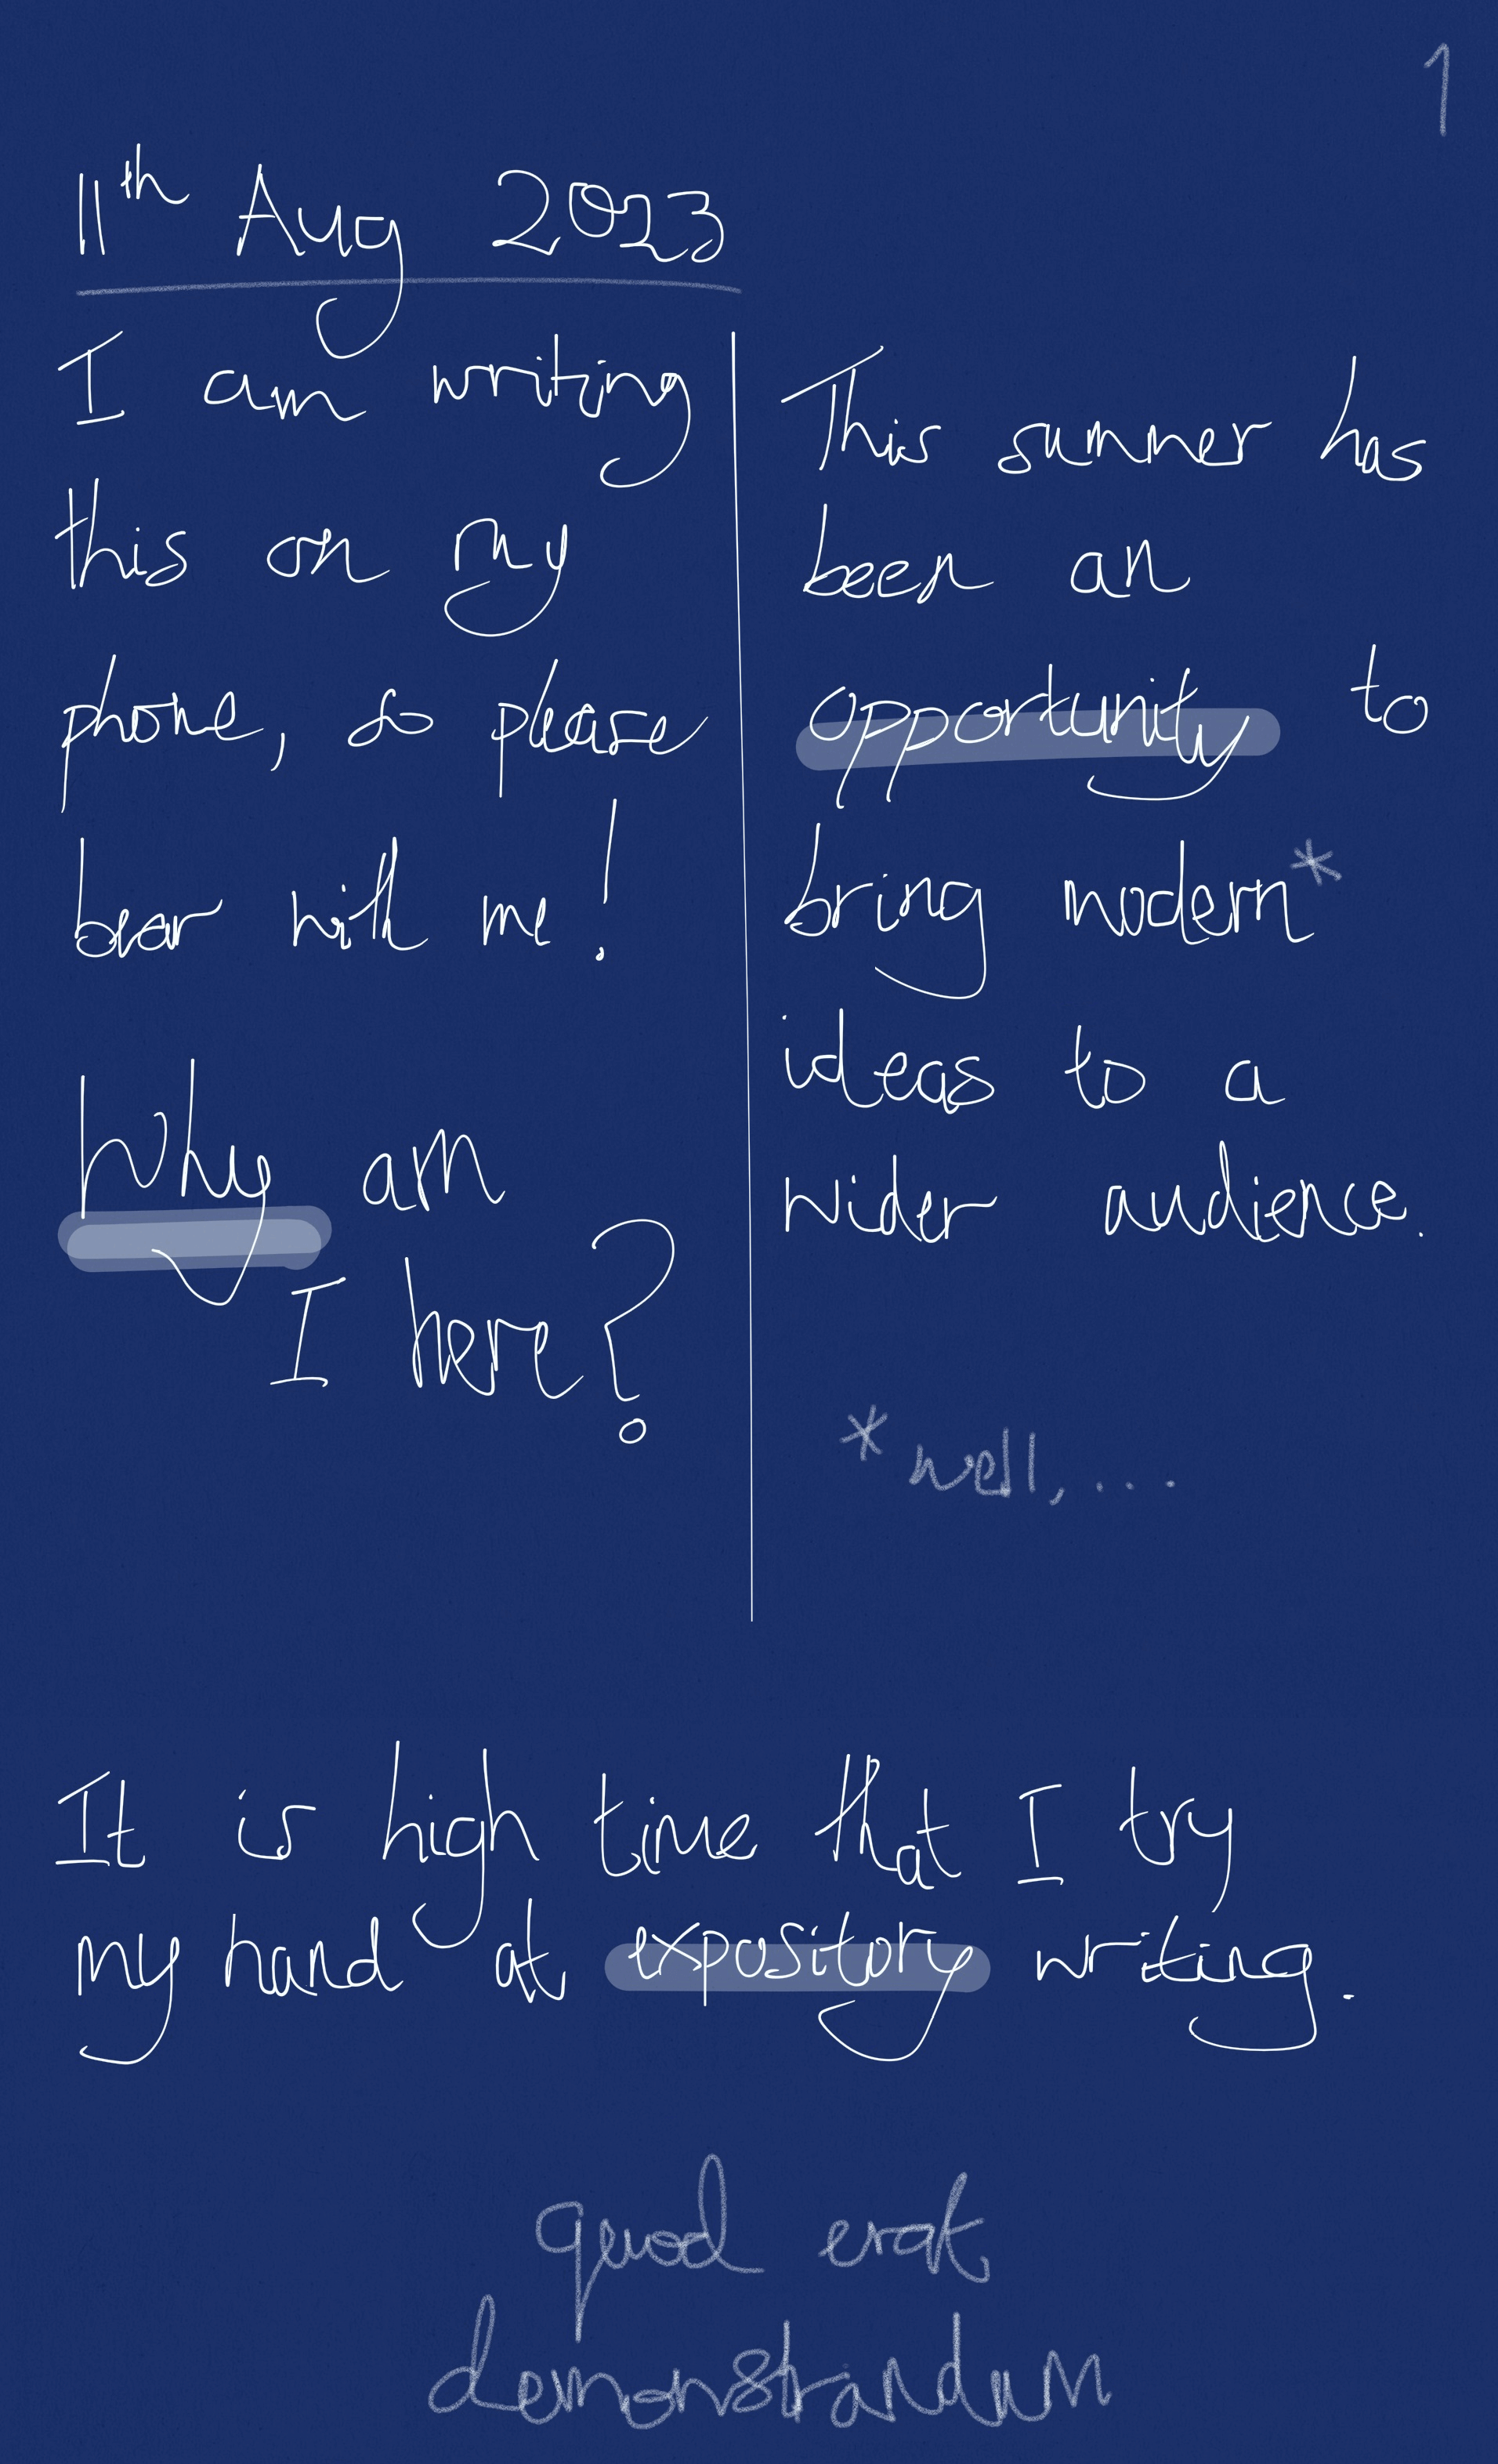 1
11th Aug 2023
I am writing
this on my
phone, so please
bear with me!
Why am
I here?
This summer has
been an
opportunity to
bring modern*
ideas to a
wider audience.
*well, ...
It is high time that I try
my hand at expository writing.
quod erat
demonstrandum